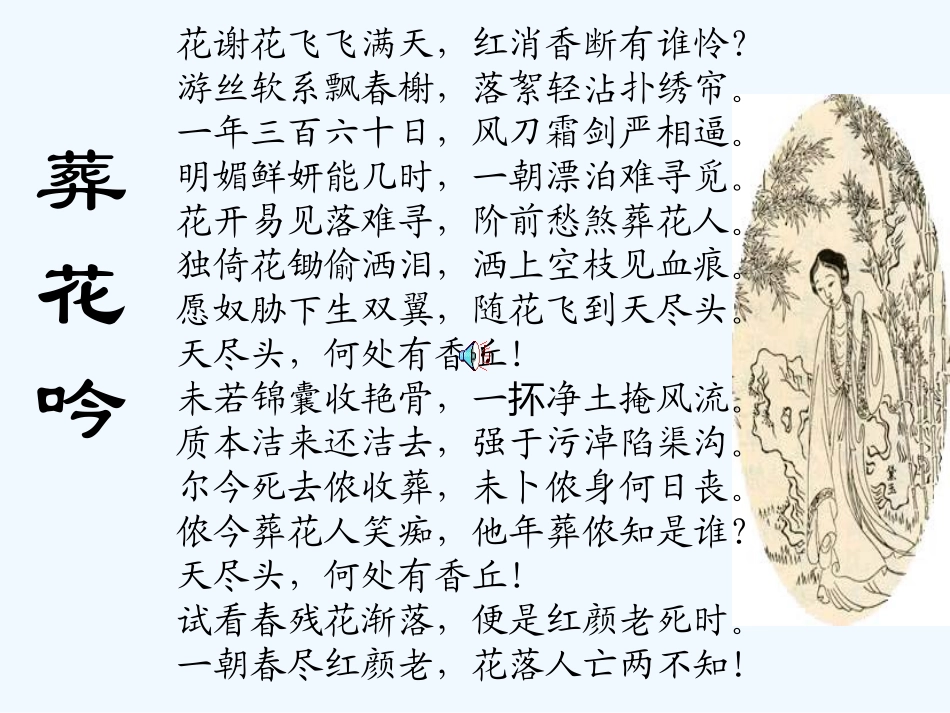 葬花吟
花谢花飞飞满天，红消香断有谁怜？
游丝软系飘春榭，落絮轻沾扑绣帘。
一年三百六十日，风刀霜剑严相逼。
明媚鲜妍能几时，一朝漂泊难寻觅。
花开易见落难寻，阶前愁煞葬花人。
独倚花锄偷洒泪，洒上空枝见血痕。
愿奴胁下生双翼，随花飞到天尽头。
天尽头，何处有香丘！
未若锦囊收艳骨，一抔净土掩风流。
质本洁来还洁去，强于污淖陷渠沟。
尔今死去侬收葬，未卜侬身何日丧。
侬今葬花人笑痴，他年葬侬知是谁？
天尽头，何处有香丘！
试看春残花渐落，便是红颜老死时。
一朝春尽红颜老，花落人亡两不知！
黛玉